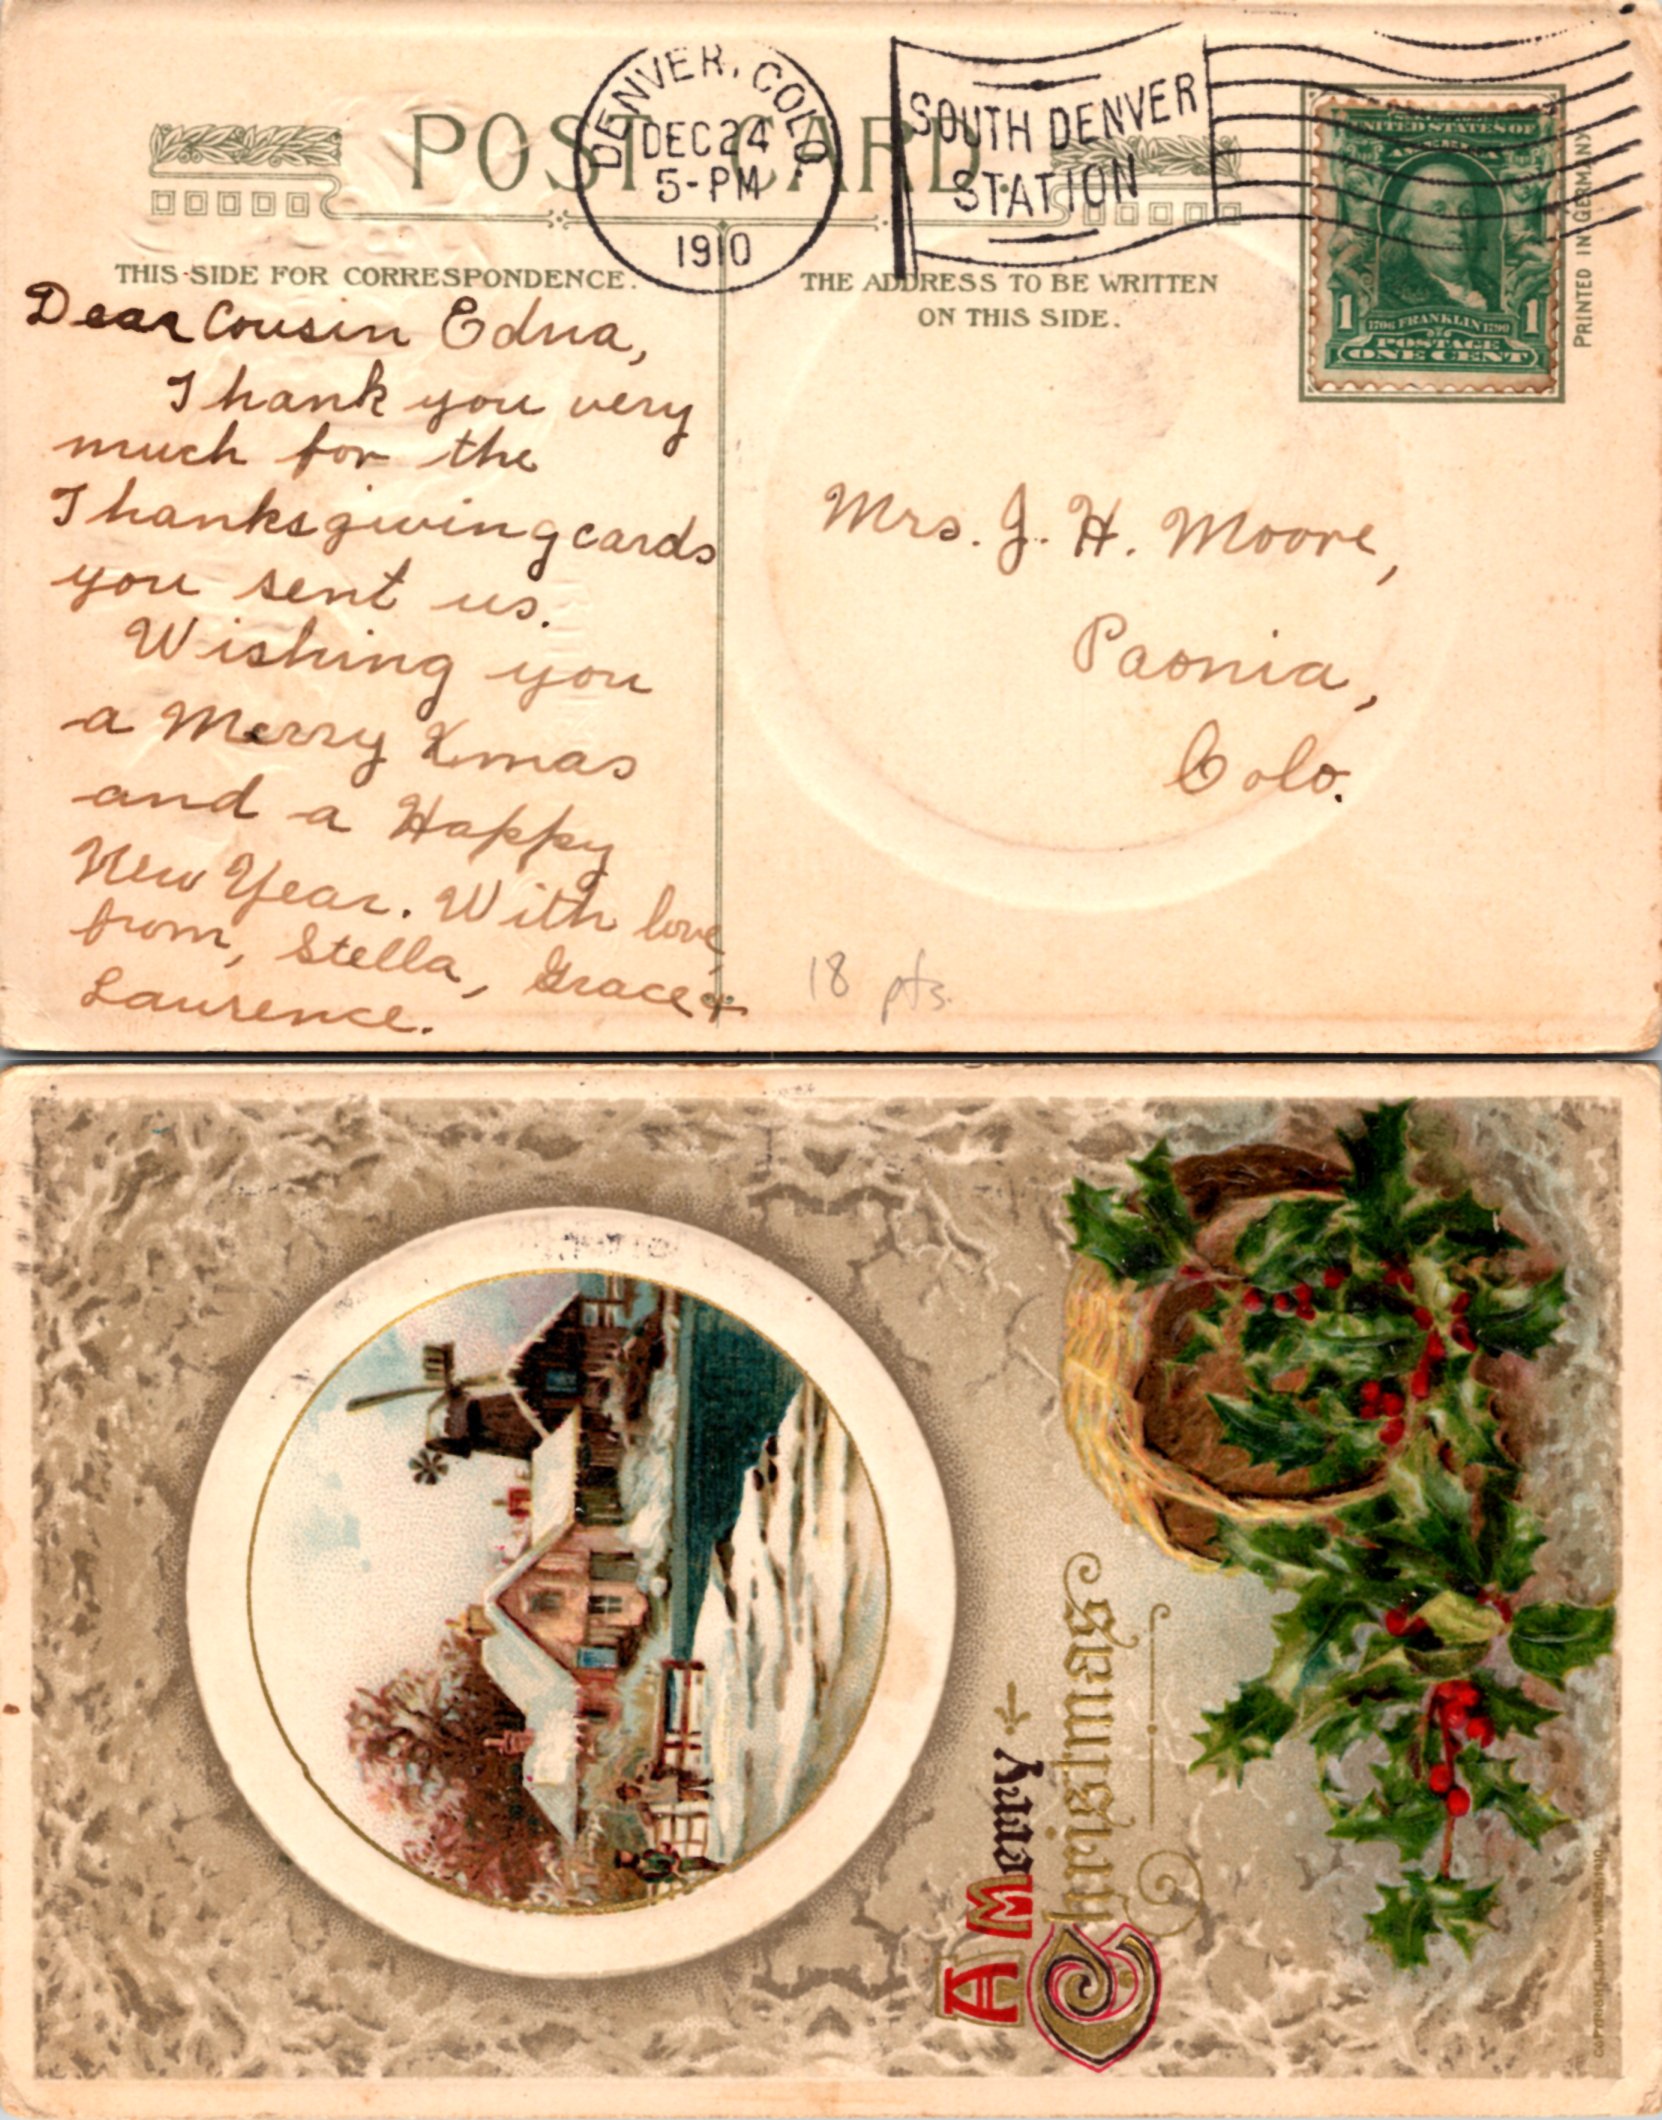 POST CARD.
DENVER, COLO.
DEC 24
5-PM
1910
SOUTH DENVER
STATION
UNITED STATES OF
AMERICA
1 1706 FRANKLIN 1790 1
POSTAGE
ONE CENT
PRINTED IN GERMANY
THIS SIDE FOR CORRESPONDENCE.
THE ADDRESS TO BE WRITTEN
ON THIS SIDE.
Dear Cousin Edna,
Thank you very
much for the
Thanksgiving cards
you sent us.
Wishing you
a Merry Xmas
and a Happy
New Year. With love,
from, Stella, Grace +
Laurence.
Mrs. J. H. Moore,
Paonia,
Colo.
18 pts.
A Merry
Christmas
COPYRIGHT, JOHN WINSCH, 1910.